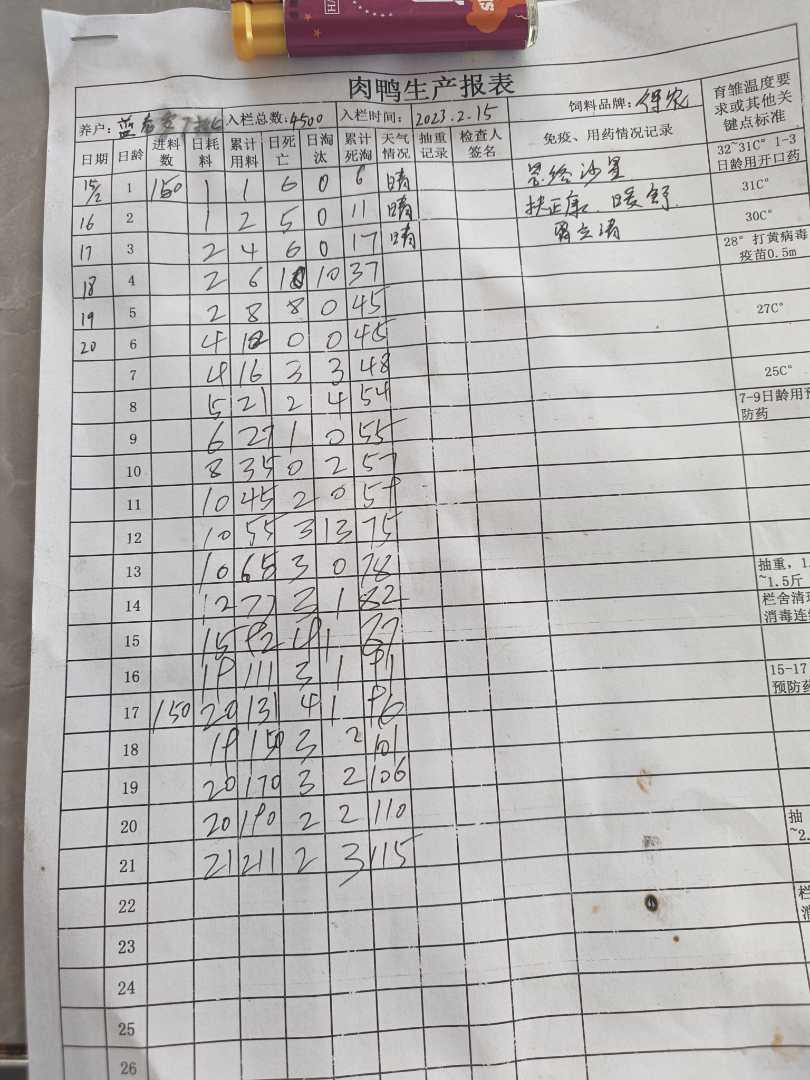 肉鸭生产报表
养户: 蓝 入栏总数: 4500 入栏时间: 2023.2.15 饲料品牌: 得农 育雏温度要求或其他关键点标准
日期 日龄 进料数 日耗料 累计用料 日死亡 日淘汰 累计死淘 天气情况 抽重记录 检查人签名 免疫、用药情况记录 32~31C° 1-3日龄用开口药
15/2 1 150 1 1 6 0 6 晴 恩给沙星 31C°
16 2 1 2 5 0 11 晴 扶正康、暖舒 30C°
17 3 2 4 6 0 17 晴 胃立清 28° 打黄病毒疫苗0.5m
18 4 2 6 10 10 37
19 5 2 8 8 0 45 27C°
20 6 4 12 0 0 45
7 4 16 3 3 48 25C°
8 5 21 2 4 54 7-9日龄用预防药
9 6 27 1 0 55
10 8 35 0 2 57
11 10 45 2 0 59
12 10 55 3 13 75
13 10 65 3 0 78 抽重, 1. ~1.5斤
14 12 77 3 1 82 栏舍清 消毒连
15 15 92 4 1 87
16 19 111 3 1 91 15-17 预防药
17 150 20 131 4 1 96
18 19 150 3 2 101
19 20 170 3 2 106
20 20 190 2 2 110 抽 ~2.
21 21 211 2 3 115
22 栏
23
24
25
26